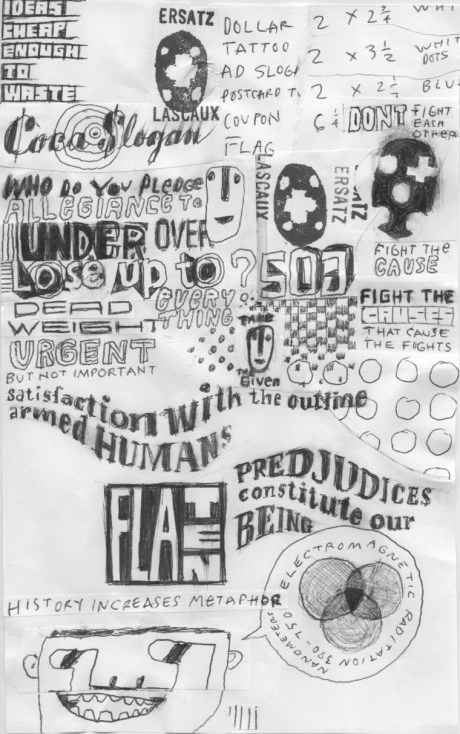 IDEAS
CHEAP
ENOUGH
TO
WASTE
ERSATZ
LASCAUX
DOLLAR
TATTOO
AD SLOGA
POSTCARD T
COUPON
FLAG
2 x 2 3/4 WHI
2 x 3 1/2 WHIT
DOTS
2 x 2 BLU
6 1/4
DONT FIGHT
EACH
OTHER
Coca Slogan
WHO DO YOU PLEDGE
ALLEGIANCE TO
UNDER OVER
LOSE UP TO ?
EVERY
THING
DEAD
WEIGHT
URGENT
BUT NOT IMPORTANT
LASCAUX
ERSATZ
TZ
503
TAKE
Given
FIGHT THE
CAUSE
FIGHT THE
CAUSES
THAT CAUSE
THE FIGHTS
satisfaction with the outline
armed HUMANS
PREDJUDICES
constitute our
BEING
FLATTEN
HISTORY INCREASES METAPHOR
ELECTROMAGNETIC RADITATION 390-750 NANOMETERS